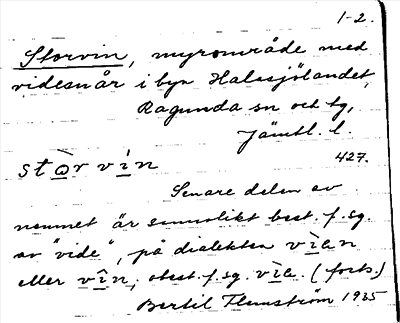 1-2.
Storvin, myrområde med
videsnår i byn Halasjölandet,
Ragunda sn och tg,
Jämtl. l.
427.
stɷ̀r vìn
Senare delen av
namnet är sannolikt best. f. sg.
av "vide", på dialekten vìan
eller vîn, obest. f. sg. vìa. (forts.)
Bertil Flemström 1935